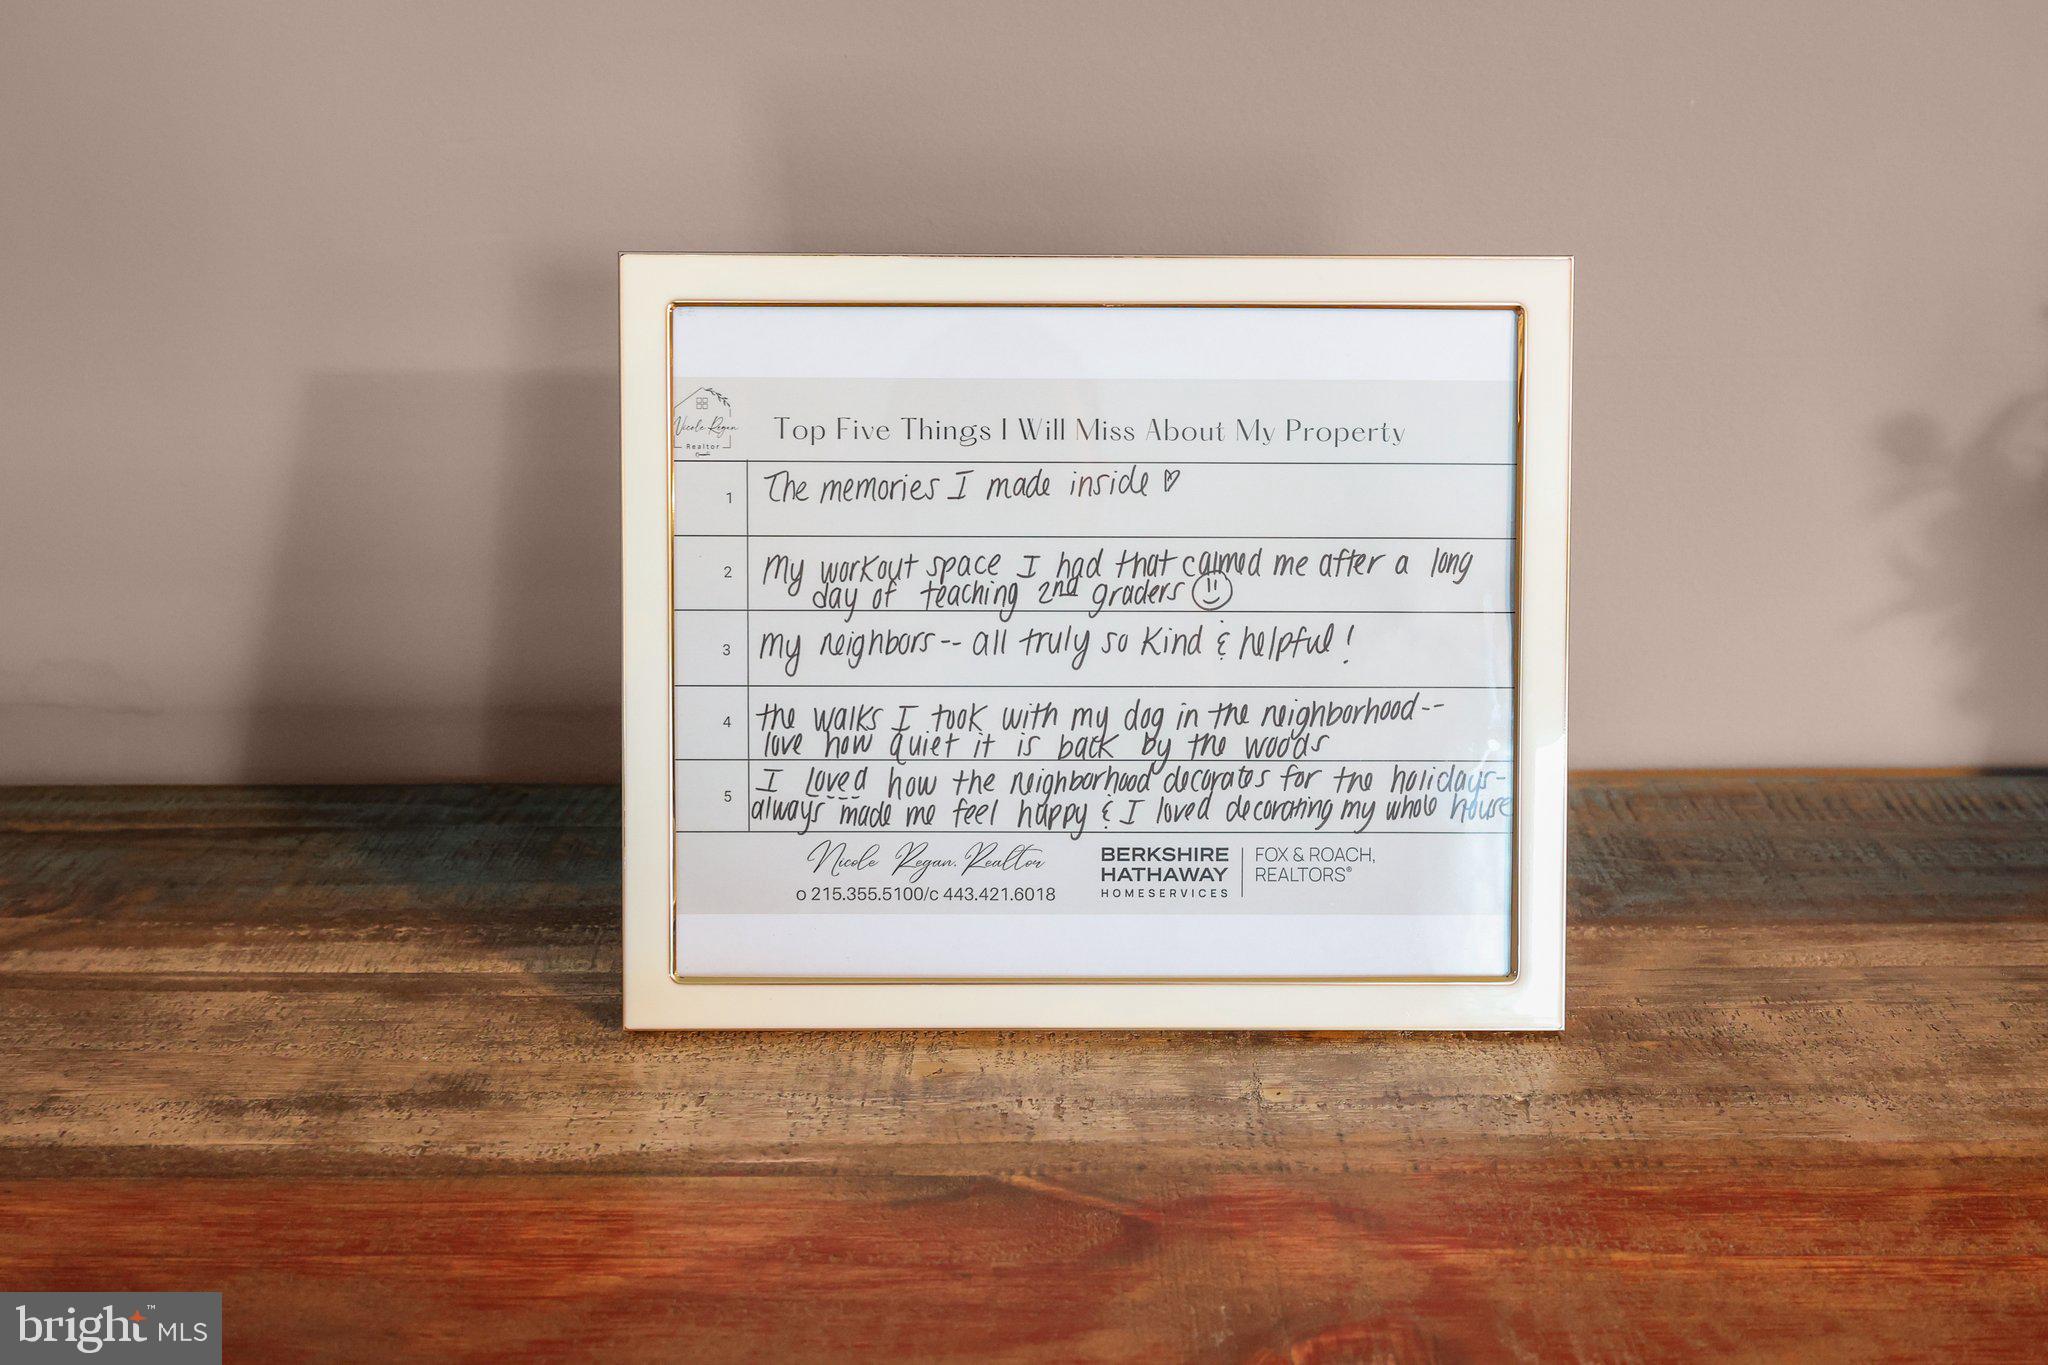 Nicole Regan
Realtor
Top Five Things I Will Miss About My Property
1 The memories I made inside
2 My workout space I had that calmed me after a long
day of teaching 2nd graders
3 My neighbors-- all truly so kind & helpful!
4 the walks I took with my dog in the neighborhood--
love how quiet it is back by the woods
5 I loved how the neighborhood decorates for the holidays-
always made me feel happy & I loved decorating my whole house
Nicole Regan, Realtor
o 215.355.5100/c 443.421.6018
BERKSHIRE
HATHAWAY
HOMESERVICES
FOX & ROACH,
REALTORS®
bright™ MLS